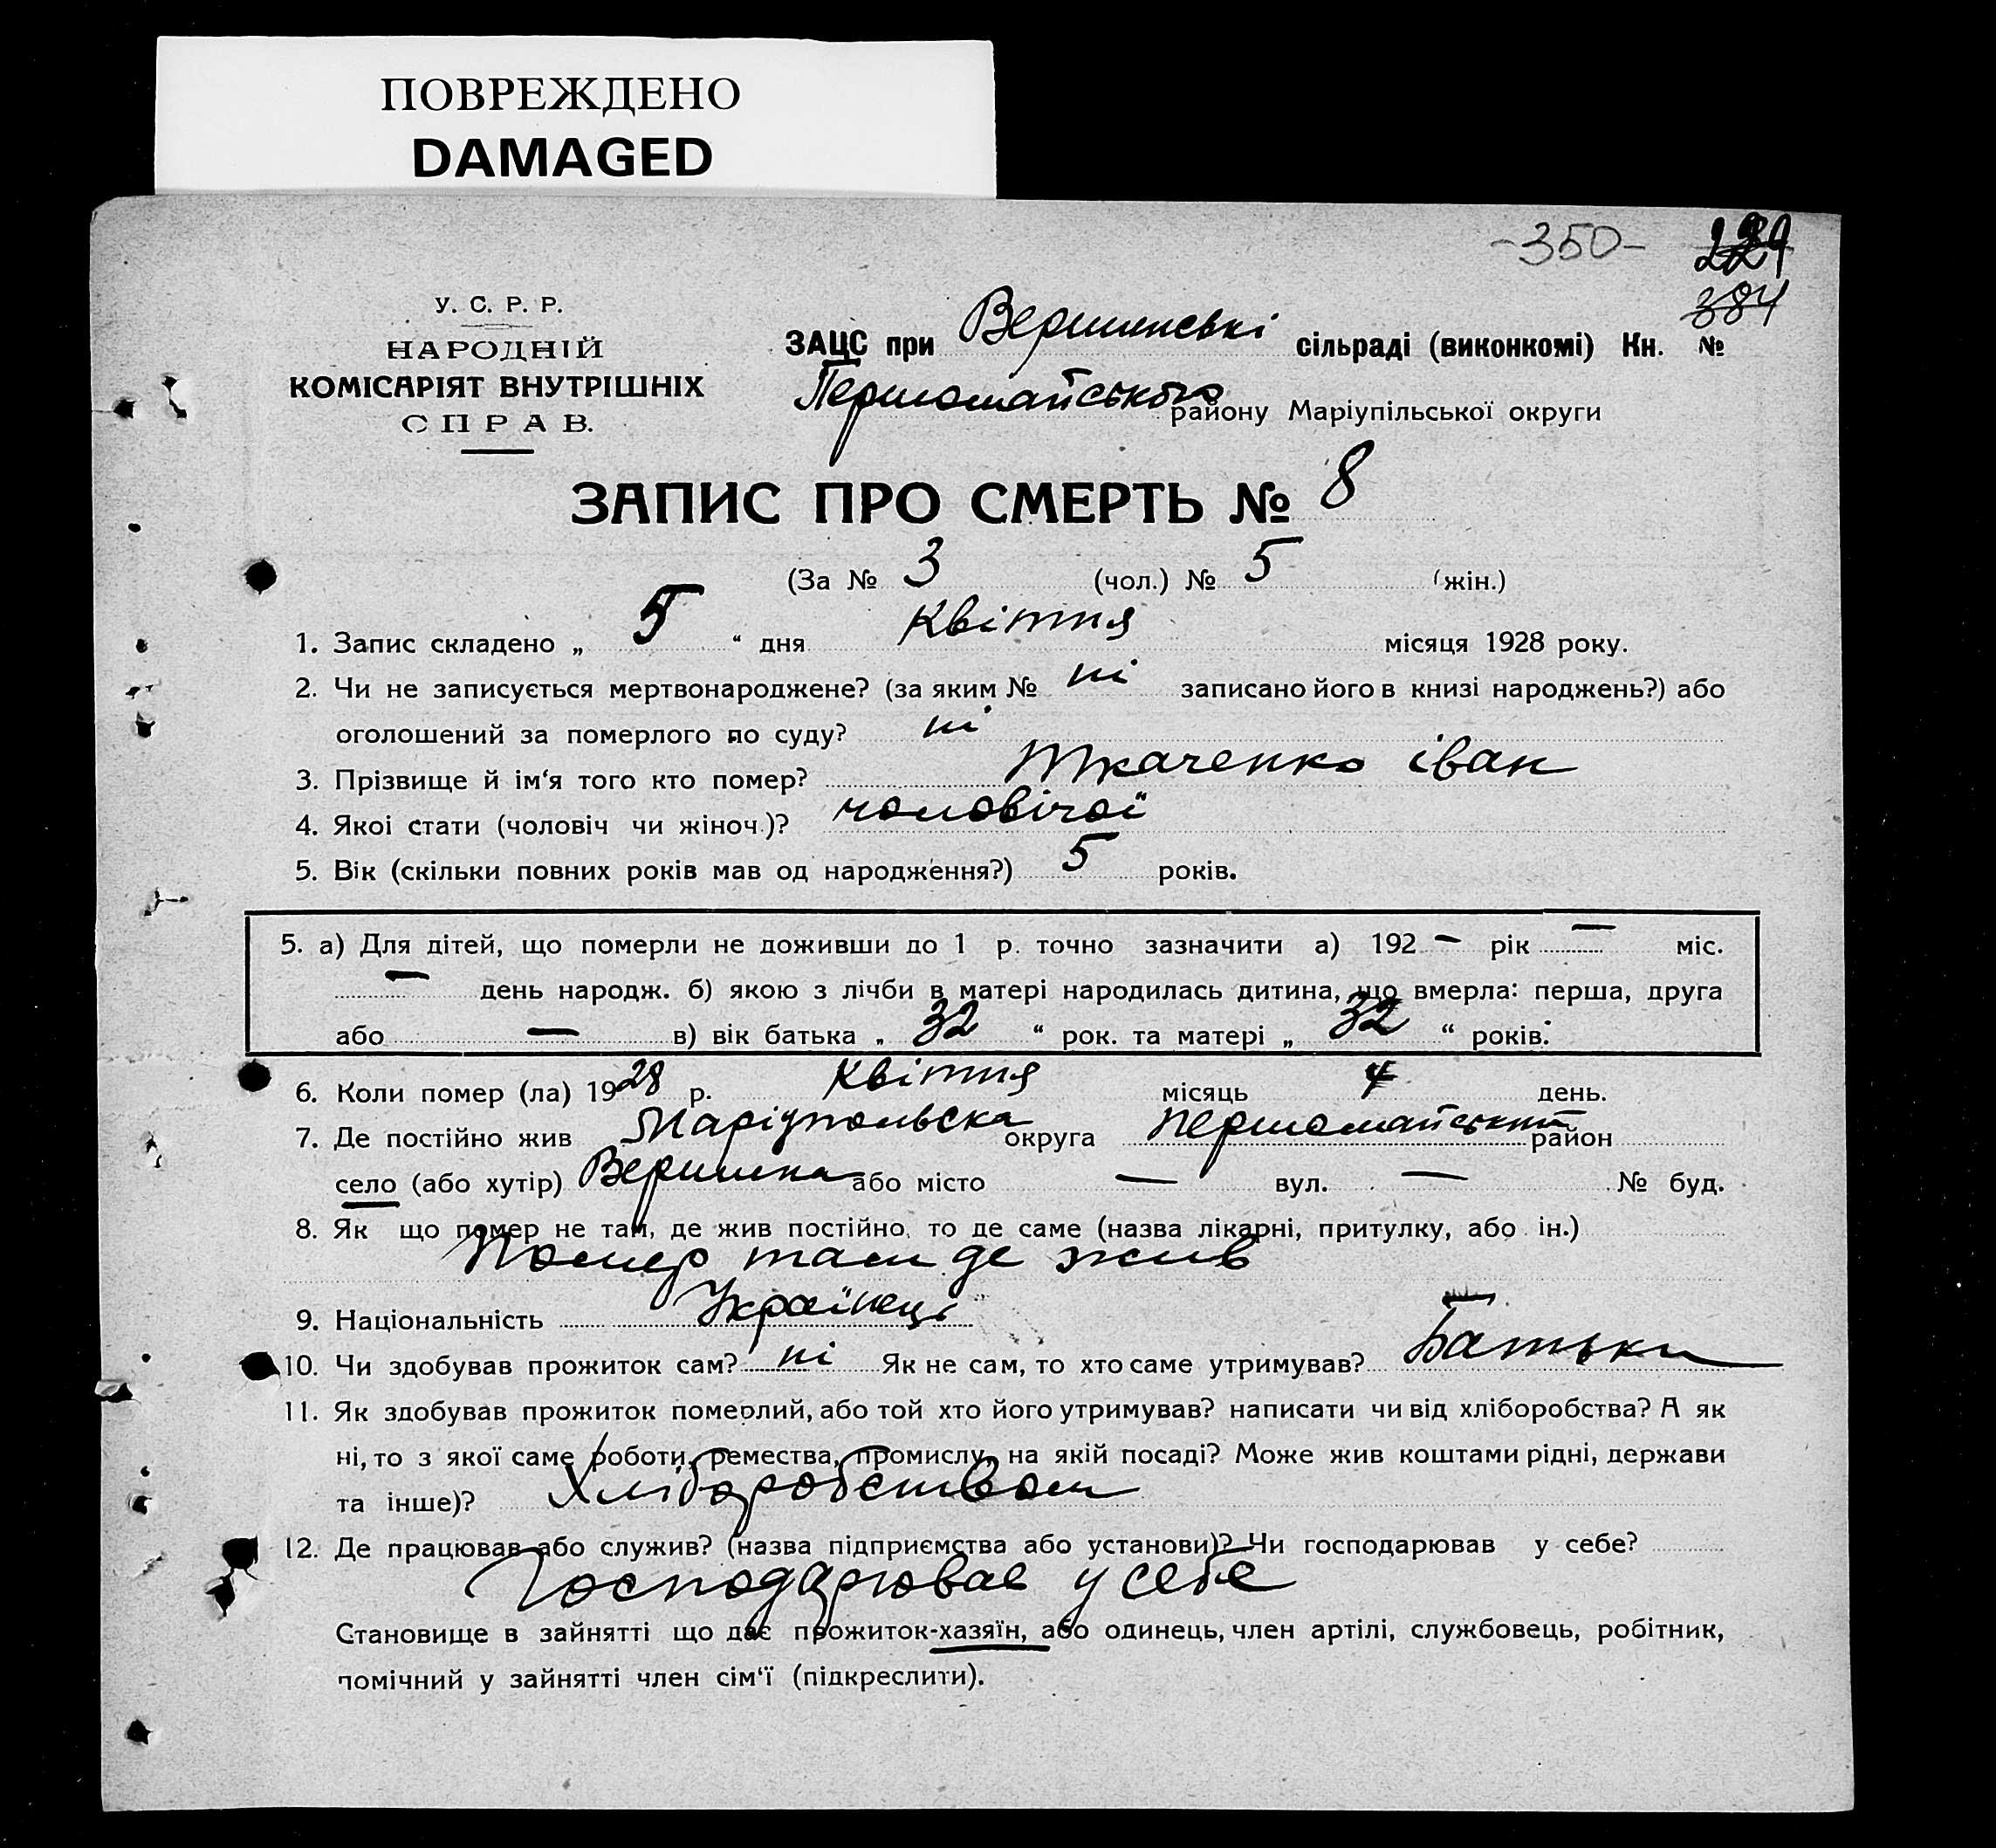 ПОВРЕЖДЕНО
DAMAGED
-350- 229
384
У. С. Р. Р.
НАРОДНІЙ
КОМІСАРІЯТ ВНУТРІШНІХ
СПРАВ.
ЗАЦС при Вершинські сільраді (виконкомі) Кн. №
Першомайського району Маріупільської округи
ЗАПИС ПРО СМЕРТЬ № 8
(За № 3 (чол.) № 5 (жін.)
1. Запис складено „ 5 “ дня Квітня місяця 1928 року.
2. Чи не записується мертвонароджене? (за яким № ні записано його в книзі народжень?) або
оголошений за померлого по суду? ні
3. Прізвище й ім‘я того кто помер? Ткаченко іван
4. Якоі стати (чоловіч чи жіноч.)? чоловічої
5. Вік (скільки повних років мав од народження?) 5 років.
5. а) Для дітей, що померли не доживши до 1 р. точно зазначити а) 192 — рік — міс.
— день народж. б) якою з лічби в матері народилась дитина, що вмерла: перша, друга
або — в) вік батька „ 32 “ рок. та матері „ 32 “ років.
6. Коли помер (ла) 1928 р. Квітня місяць 4 день.
7. Де постійно жив Маріупольська округа першомайський район
село (або хутір) Вершина або місто — вул. — № буд.
8. Як що помер не там, де жив постійно, то де саме (назва лікарні, притулку, або ін.)
Помер там де жив
9. Національність Українець
10. Чи здобував прожиток сам? ні Як не сам, то хто саме утримував? Батьки
11. Як здобував прожиток померлий, або той хто його утримував? написати чи від хліборобства? А як
ні, то з якої саме роботи, ремества, промислу, на якій посаді? Може жив коштами рідні, держави
та інше)? Хліборобством
12. Де працював або служив? (назва підприємства або установи)? Чи господарював у себе?
Господарював у себе
Становище в зайнятті що дає прожиток-хазяїн, або одинець, член артілі, службовець, робітник,
помічний у зайнятті член сім‘ї (підкреслити).